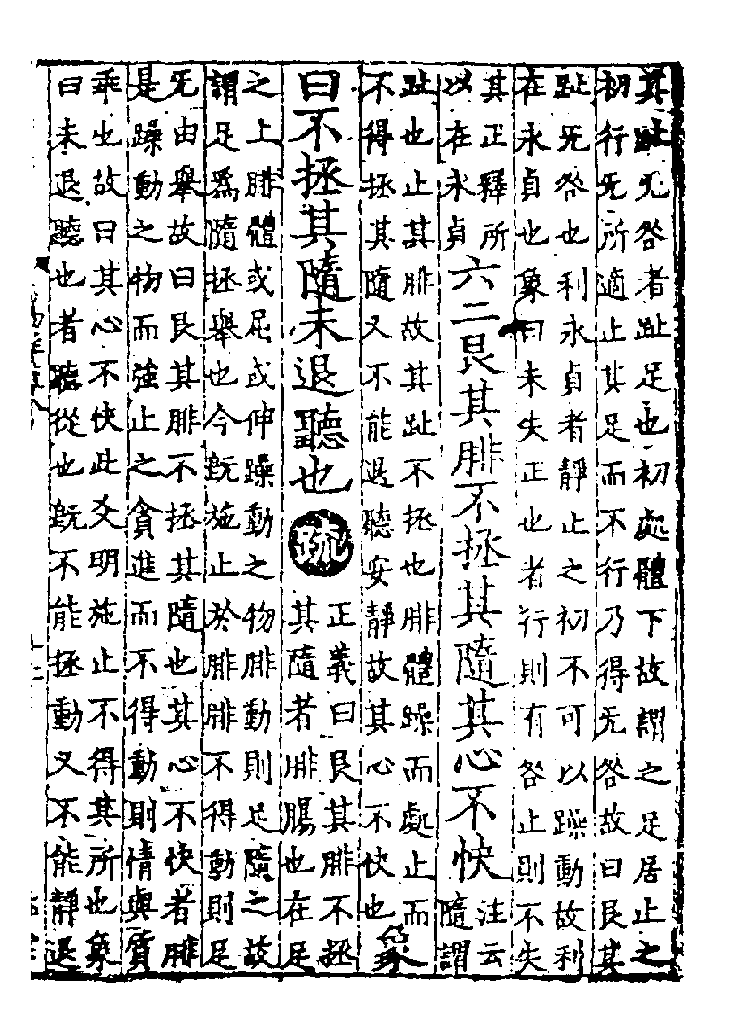 其趾无咎者趾足也初處體下故謂之足居止之
初行无所適止其足而不行乃得无咎故曰艮其
趾无咎也利永貞者靜止之初不可以躁動故利
在永貞也象曰未失正也者行則有咎止則不失
其正釋所
以在永貞
六二艮其腓不拯其隨其心不快
注云
隨謂
趾也止其腓故其趾不拯也腓體躁而處止而
不得拯其隨又不能退聽安靜故其心不快也
象
曰不拯其隨未退聽也
疏
正義曰艮其腓不拯
其隨者腓腸也在足
之上腓體或屈或伸躁動之物腓動則足隨之故
謂足爲隨拯舉也今旣施止於腓腓不得動則足
无由舉故曰艮其腓不拯其隨也其心不快者腓
是躁動之物而強止之貪進而不得動則情與質
乖也故曰其心不快此爻明施止不得其所也象
曰未退聽也者聽從也旣不能拯動又不能靜退